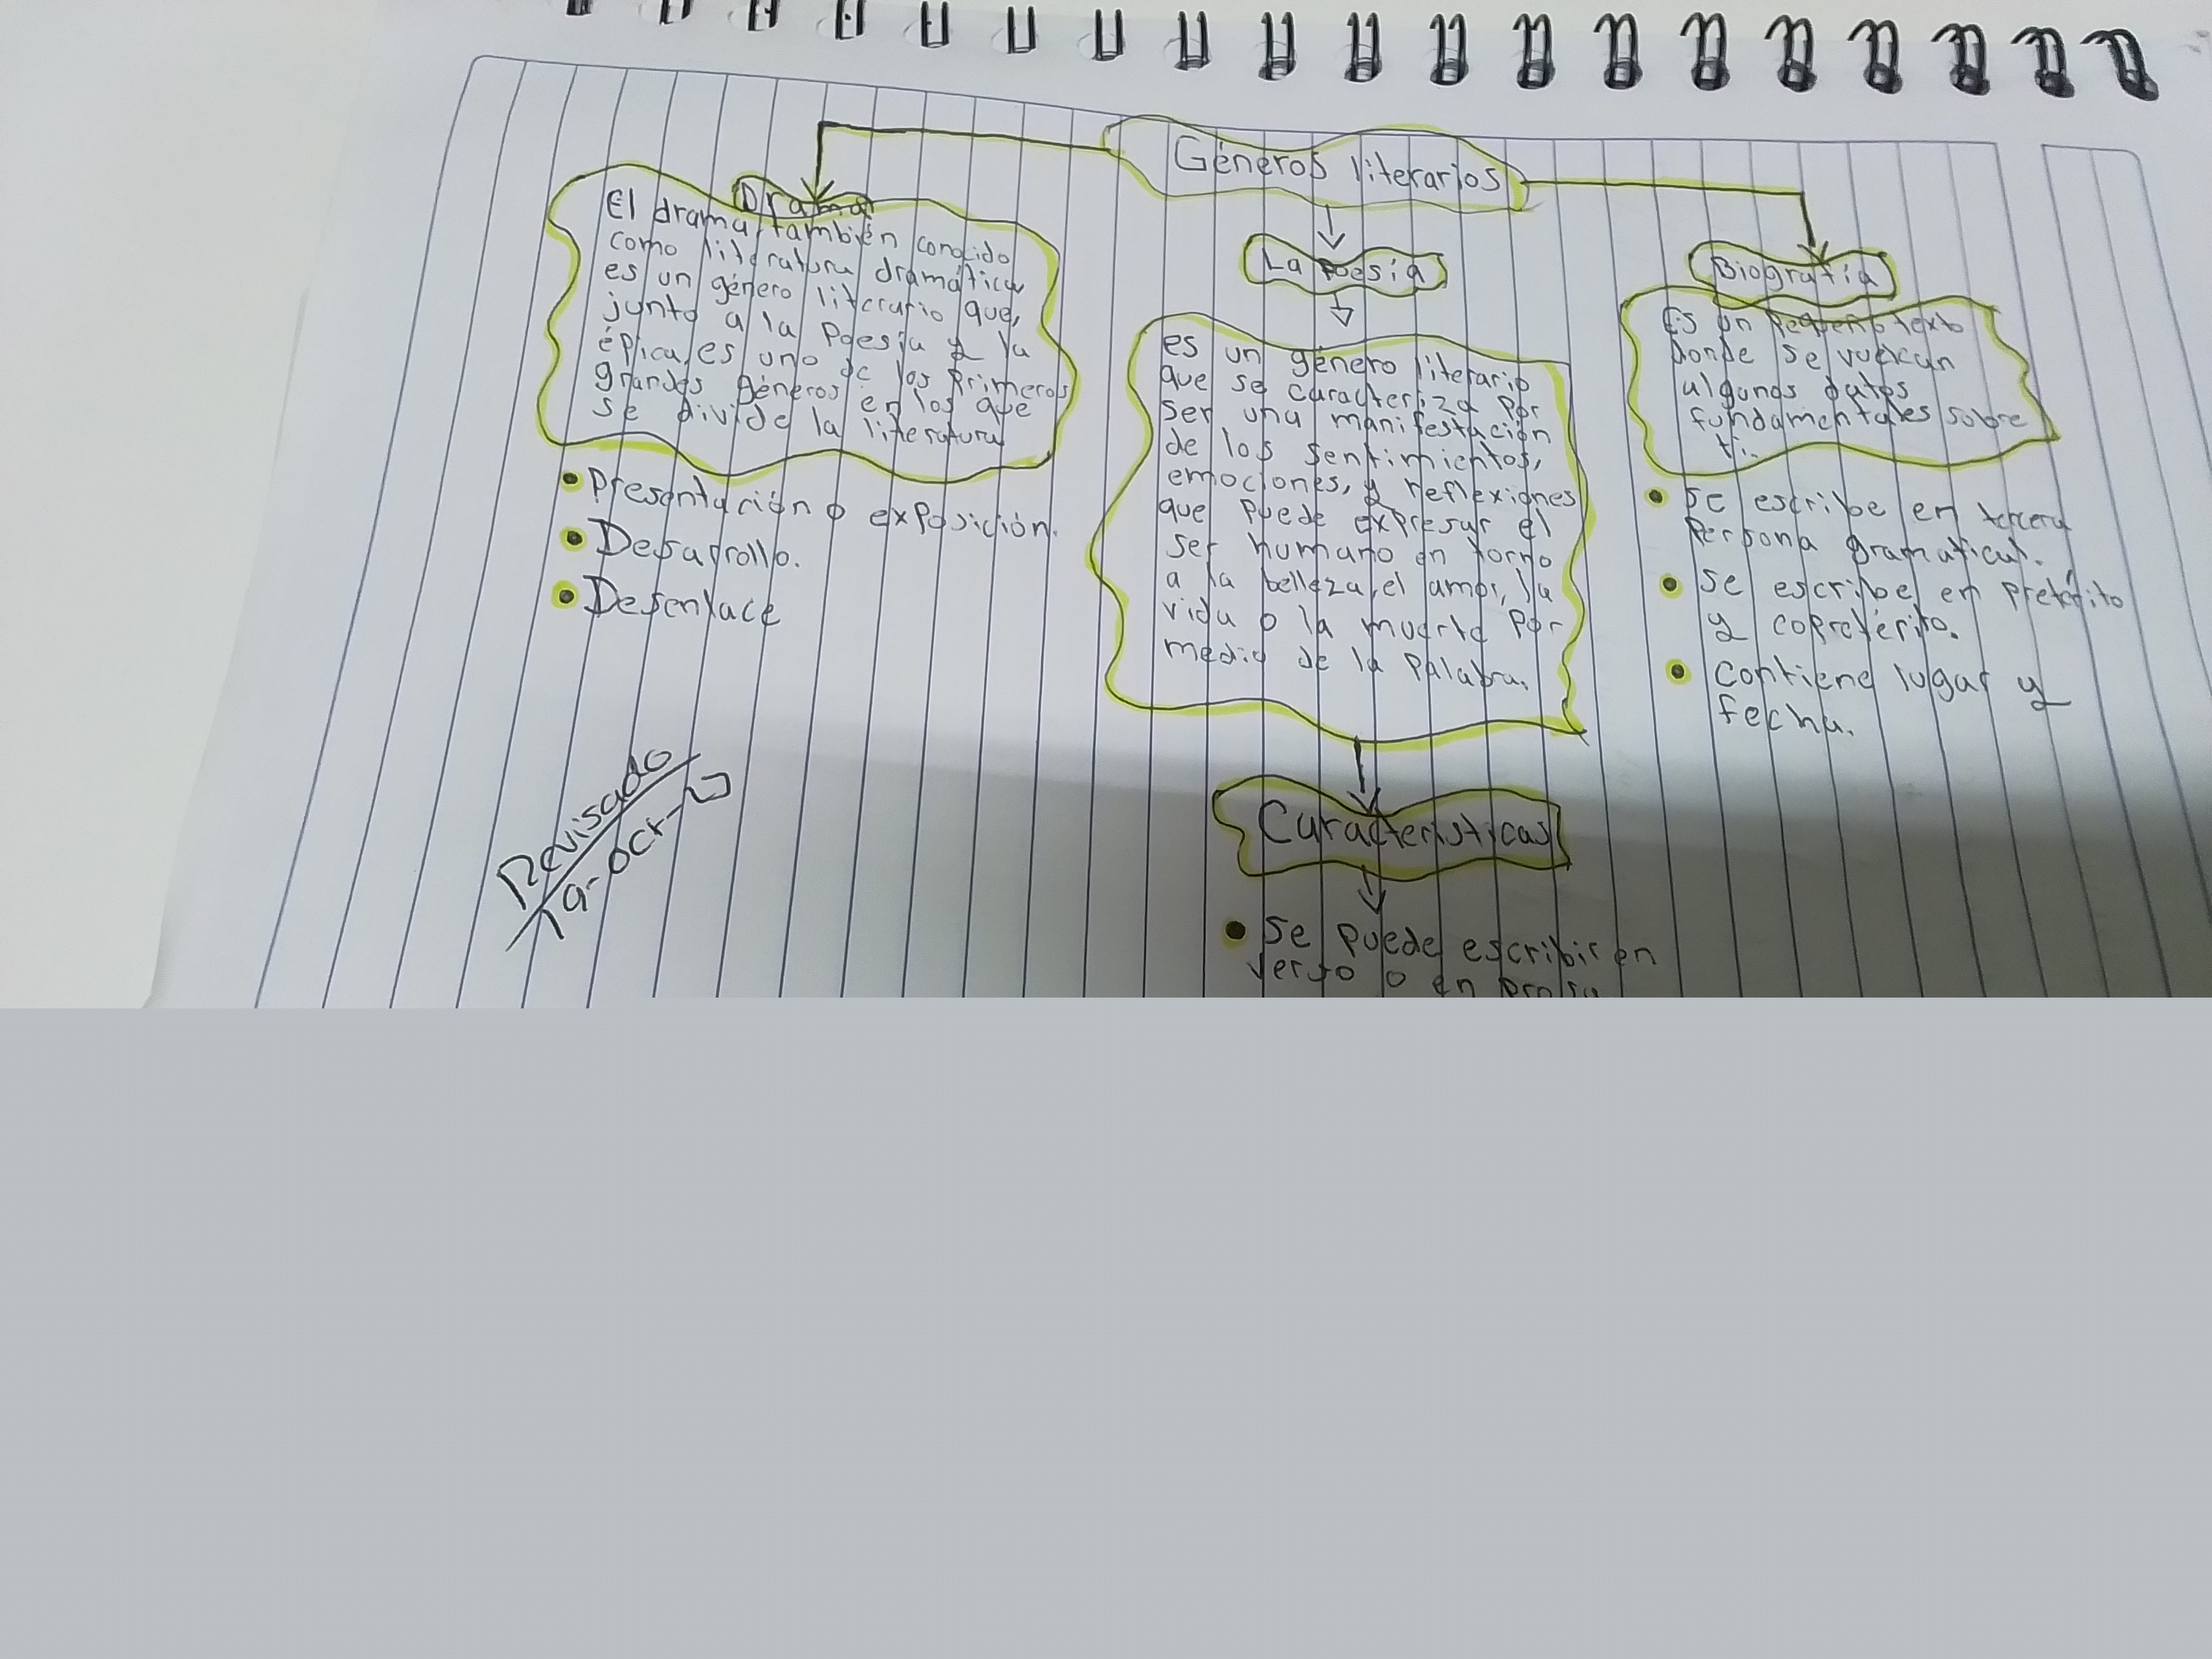 Géneros literarios
Drama
El drama, también conocido
como literatura dramática
es un género literario que,
junto a la poesía y la
épica, es uno de los primeros
grandes géneros en los que
se divide la literatura
• Presentación o exposición.
• Desarrollo.
• Desenlace
Revisado
19-oct-
La poesía
es un género literario
que se caracteriza por
ser una manifestación
de los sentimientos,
emociones, y reflexiones
que puede expresar el
ser humano en torno
a la belleza, el amor, la
vida o la muerte por
medio de la palabra.
Caracteristicas
• Se puede escribir en
verso o en prosa
Biografía
Es un pequeño texto
donde se vuelcan
algunos datos
fundamentales sobre
ti.
• Se escribe en tercera
persona gramatical.
• Se escribe en pretérito
y copretérito.
• Contiene lugar y
fecha.